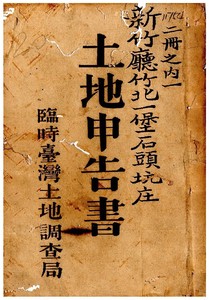 二冊之内一
新竹廳竹北一堡石頭坑庄
土地申告書
臨時臺灣土地調查局